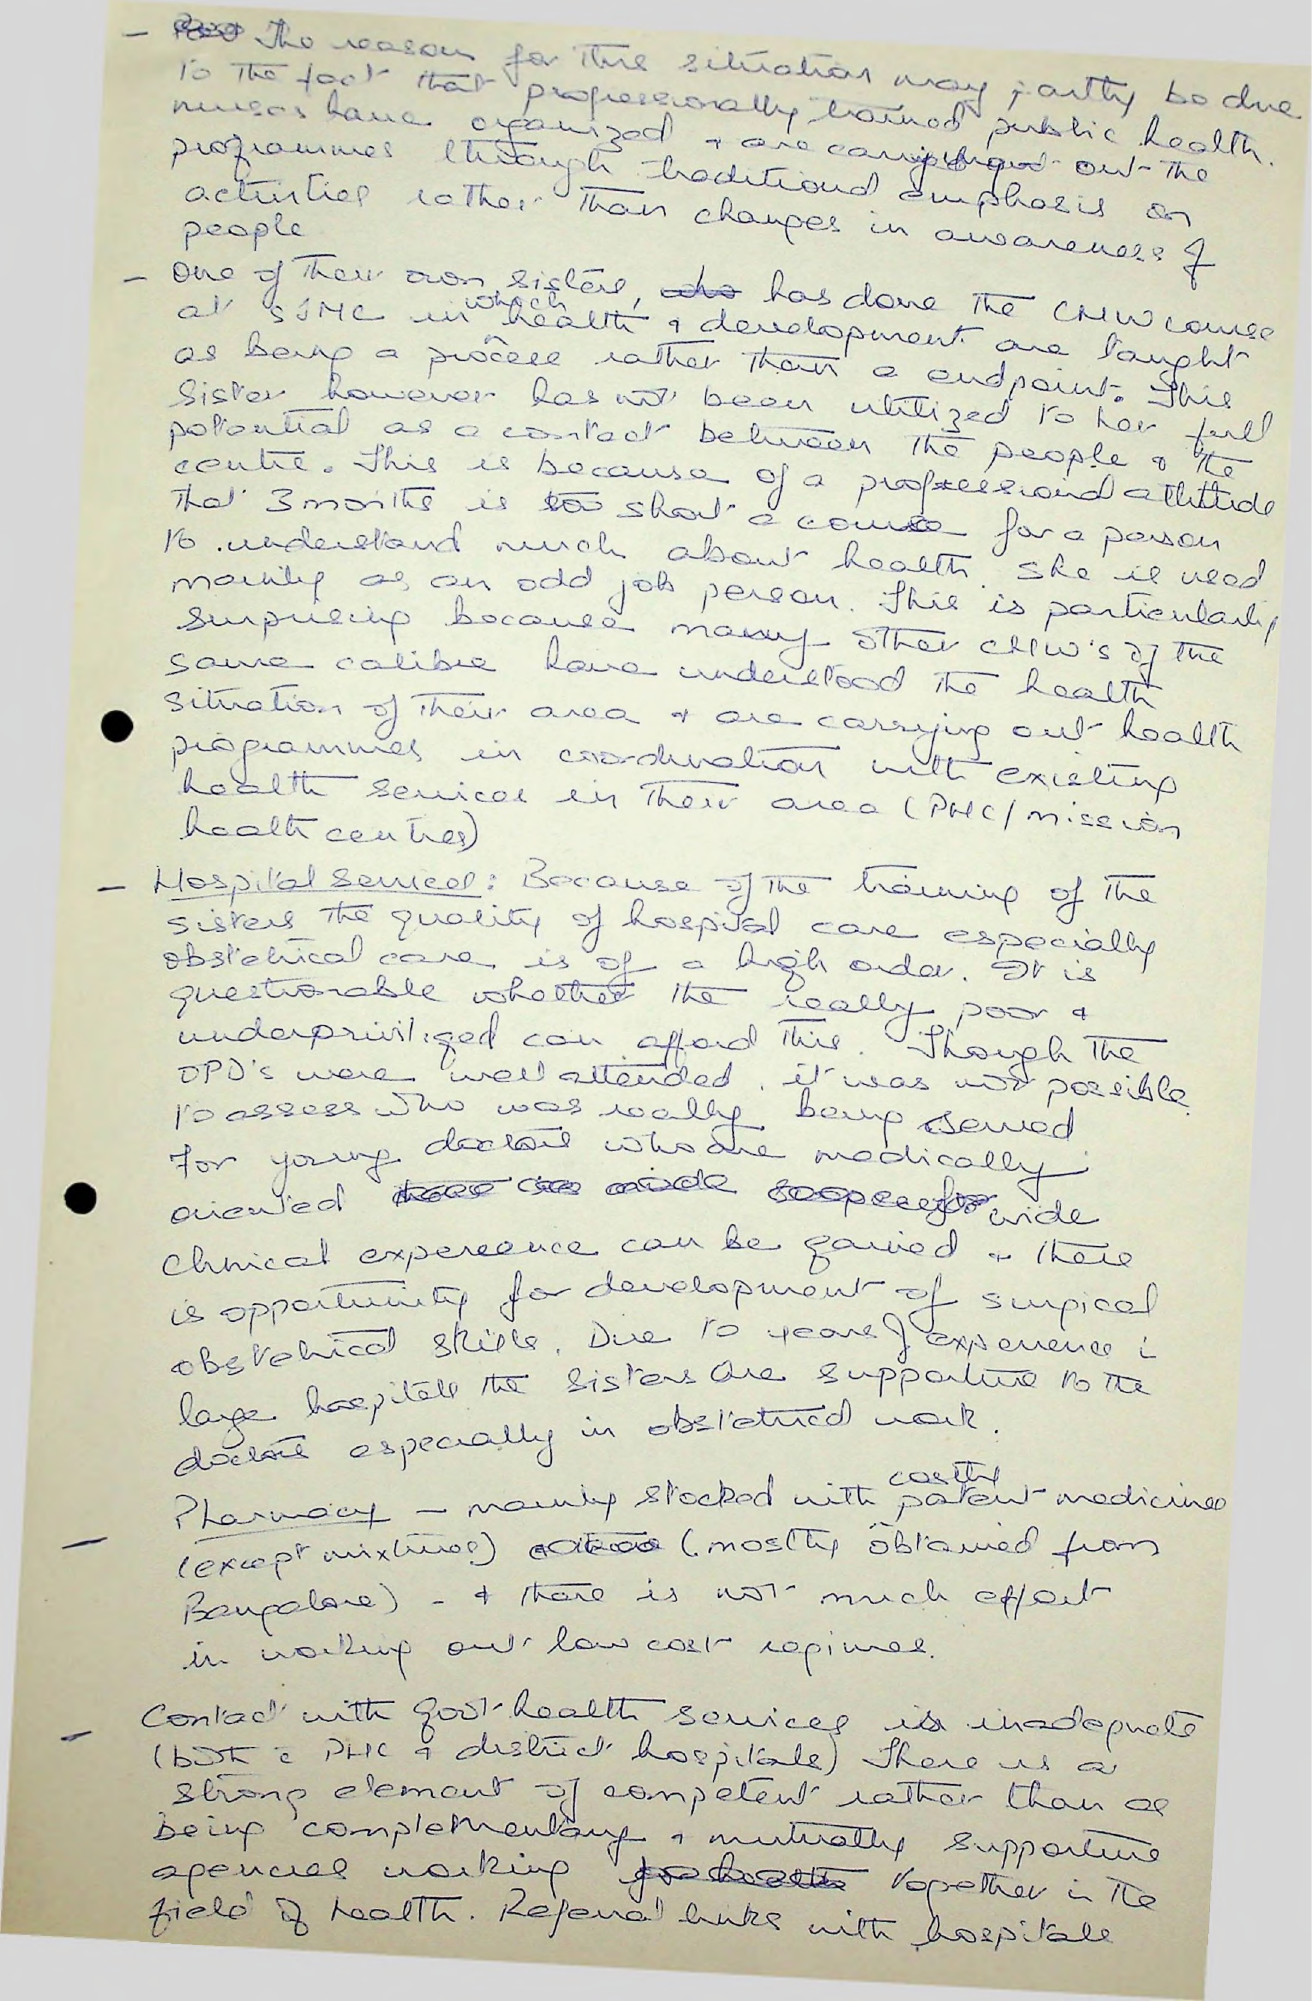 - The reason for this situation may partly be due
to the fact that professionally trained public health
nurses have organized + are carrying out the
programmes through traditional emphasis on
activities rather than changes in awareness of
people
- One of their own sisters, has done the CHW course
at SJMC in which health + development are taught
as being a process rather than a endpoint. This
sister however has not been utilized to her full
potential as a contact between the people & the
centre. This is because of a professional attitude
that 3 months is too short a course for a person
to understand much about health. She is used
mainly as an odd job person. This is particularly
surprising because many other CHW's of the
same calibre have understood the health
situation of their area + are carrying out health
programmes in coordination with existing
health services in their area (PHC/mission
health centres)
- Hospital Services: Because of the training of the
sisters the quality of hospital care especially
obstetrical care is of a high order. It is
questionable whether the really poor &
underprivileged can afford this. Though the
OPD's were well attended, it was not possible
to assess who was really being served
For young doctors who are medically
oriented wide
clinical expereance can be gained + there
is opportunity for development of surgical
obstetrical skills. Due to years of experience i
large hospitals the sisters are supportive to the
doctors especially in obstetrical work.
Pharmacy - mainly stocked with costly patent medicines
- (except mixtures) (mostly obtained from
Bangalore) - + there is not much effort
in working out low cost regimes.
- Contact with govt health services is inadequate
(both c PHC & district hospitals) There is a
strong element of competent rather than as
being complementary + mutually supportive
agencies working together in the
field of health. Referral links with hospitals